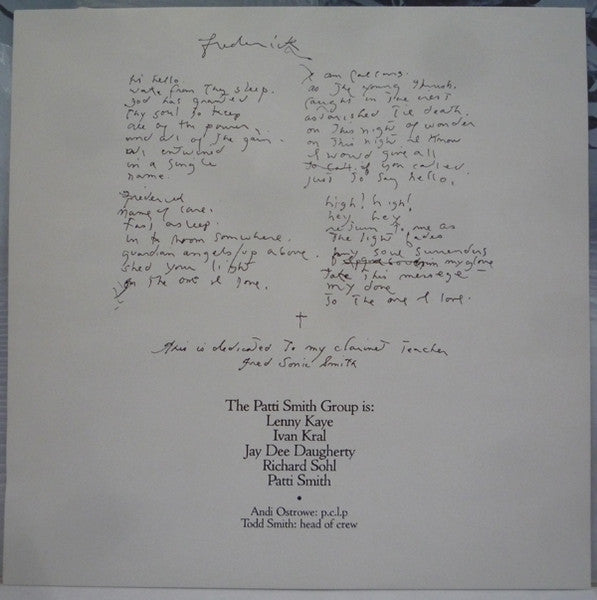 Frederick
hi hello
wake from thy sleep.
god has granted
thy soul to keep
all of the power
and all of the gain.
all entwined
in a single
name.
Frederick
name of care.
fast asleep.
in a room somewhere.
guardian angels/up above.
shed your light
on the one I love.
I am patsong.
as the young thrush.
caught in the nest
astonished til death.
on this night of wonder
on this night I know
I would give all
if you called
just to say hello.
high! high!
hey, hey
return to me as
the light fades
my soul surrenders
in my glove
Take this message
my dove
to the one I love.
This is dedicated to my clarinet teacher
Fred Sonic Smith
The Patti Smith Group is:
Lenny Kaye
Ivan Kral
Jay Dee Daugherty
Richard Sohl
Patti Smith
•
Andi Ostrowe: p.c.l.p
Todd Smith: head of crew